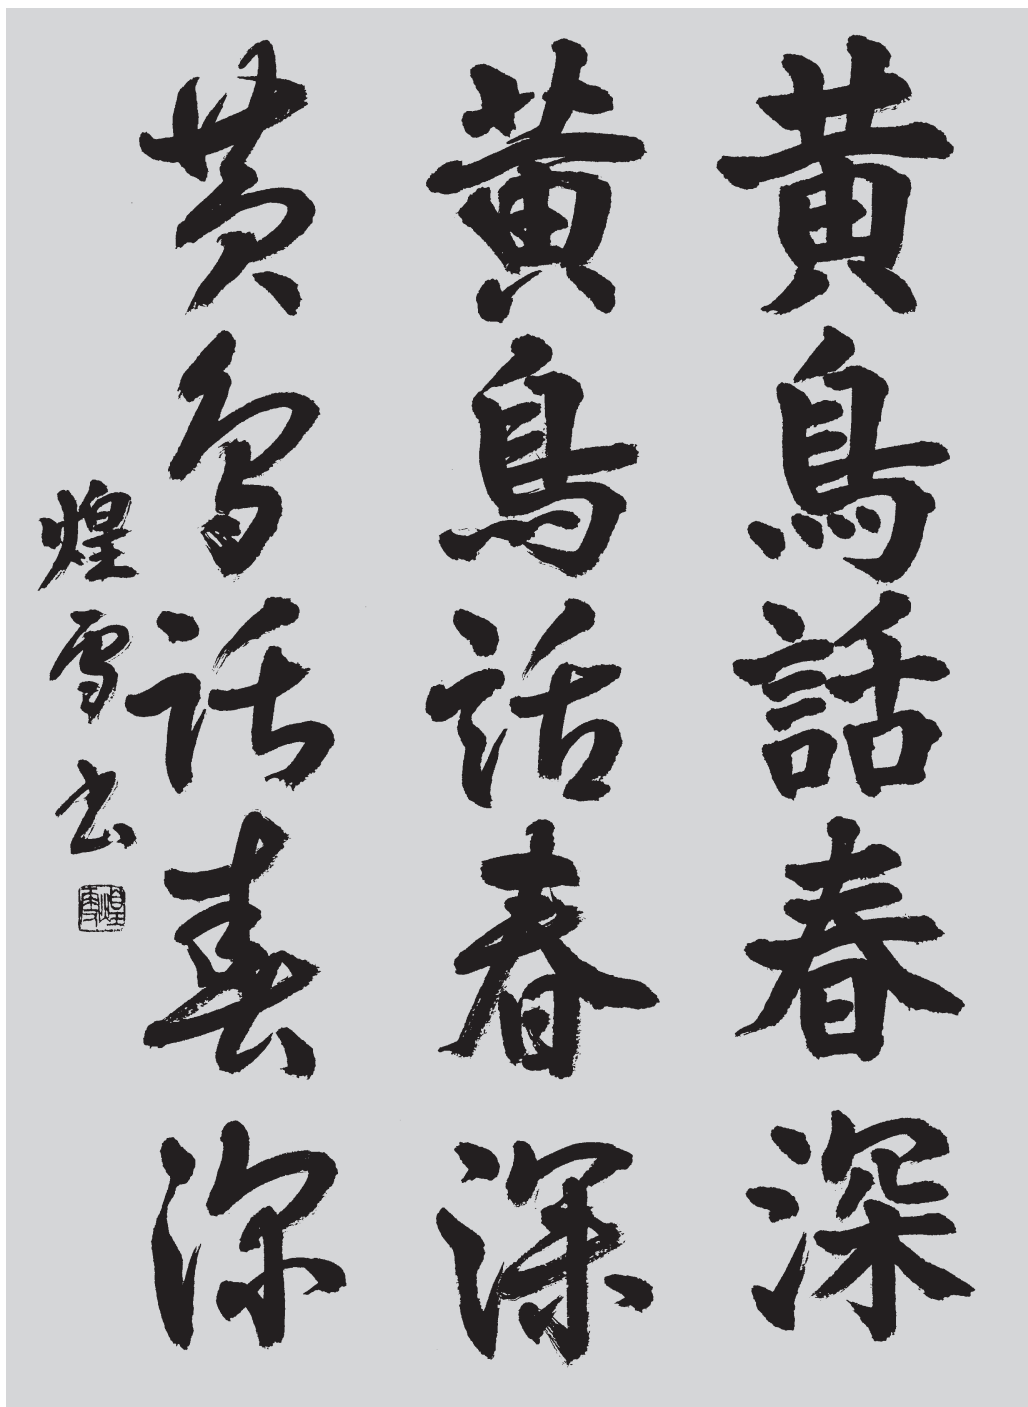 黄鳥話春深
黄鳥話春深
黄鳥話春深
煌雪書
煌雪